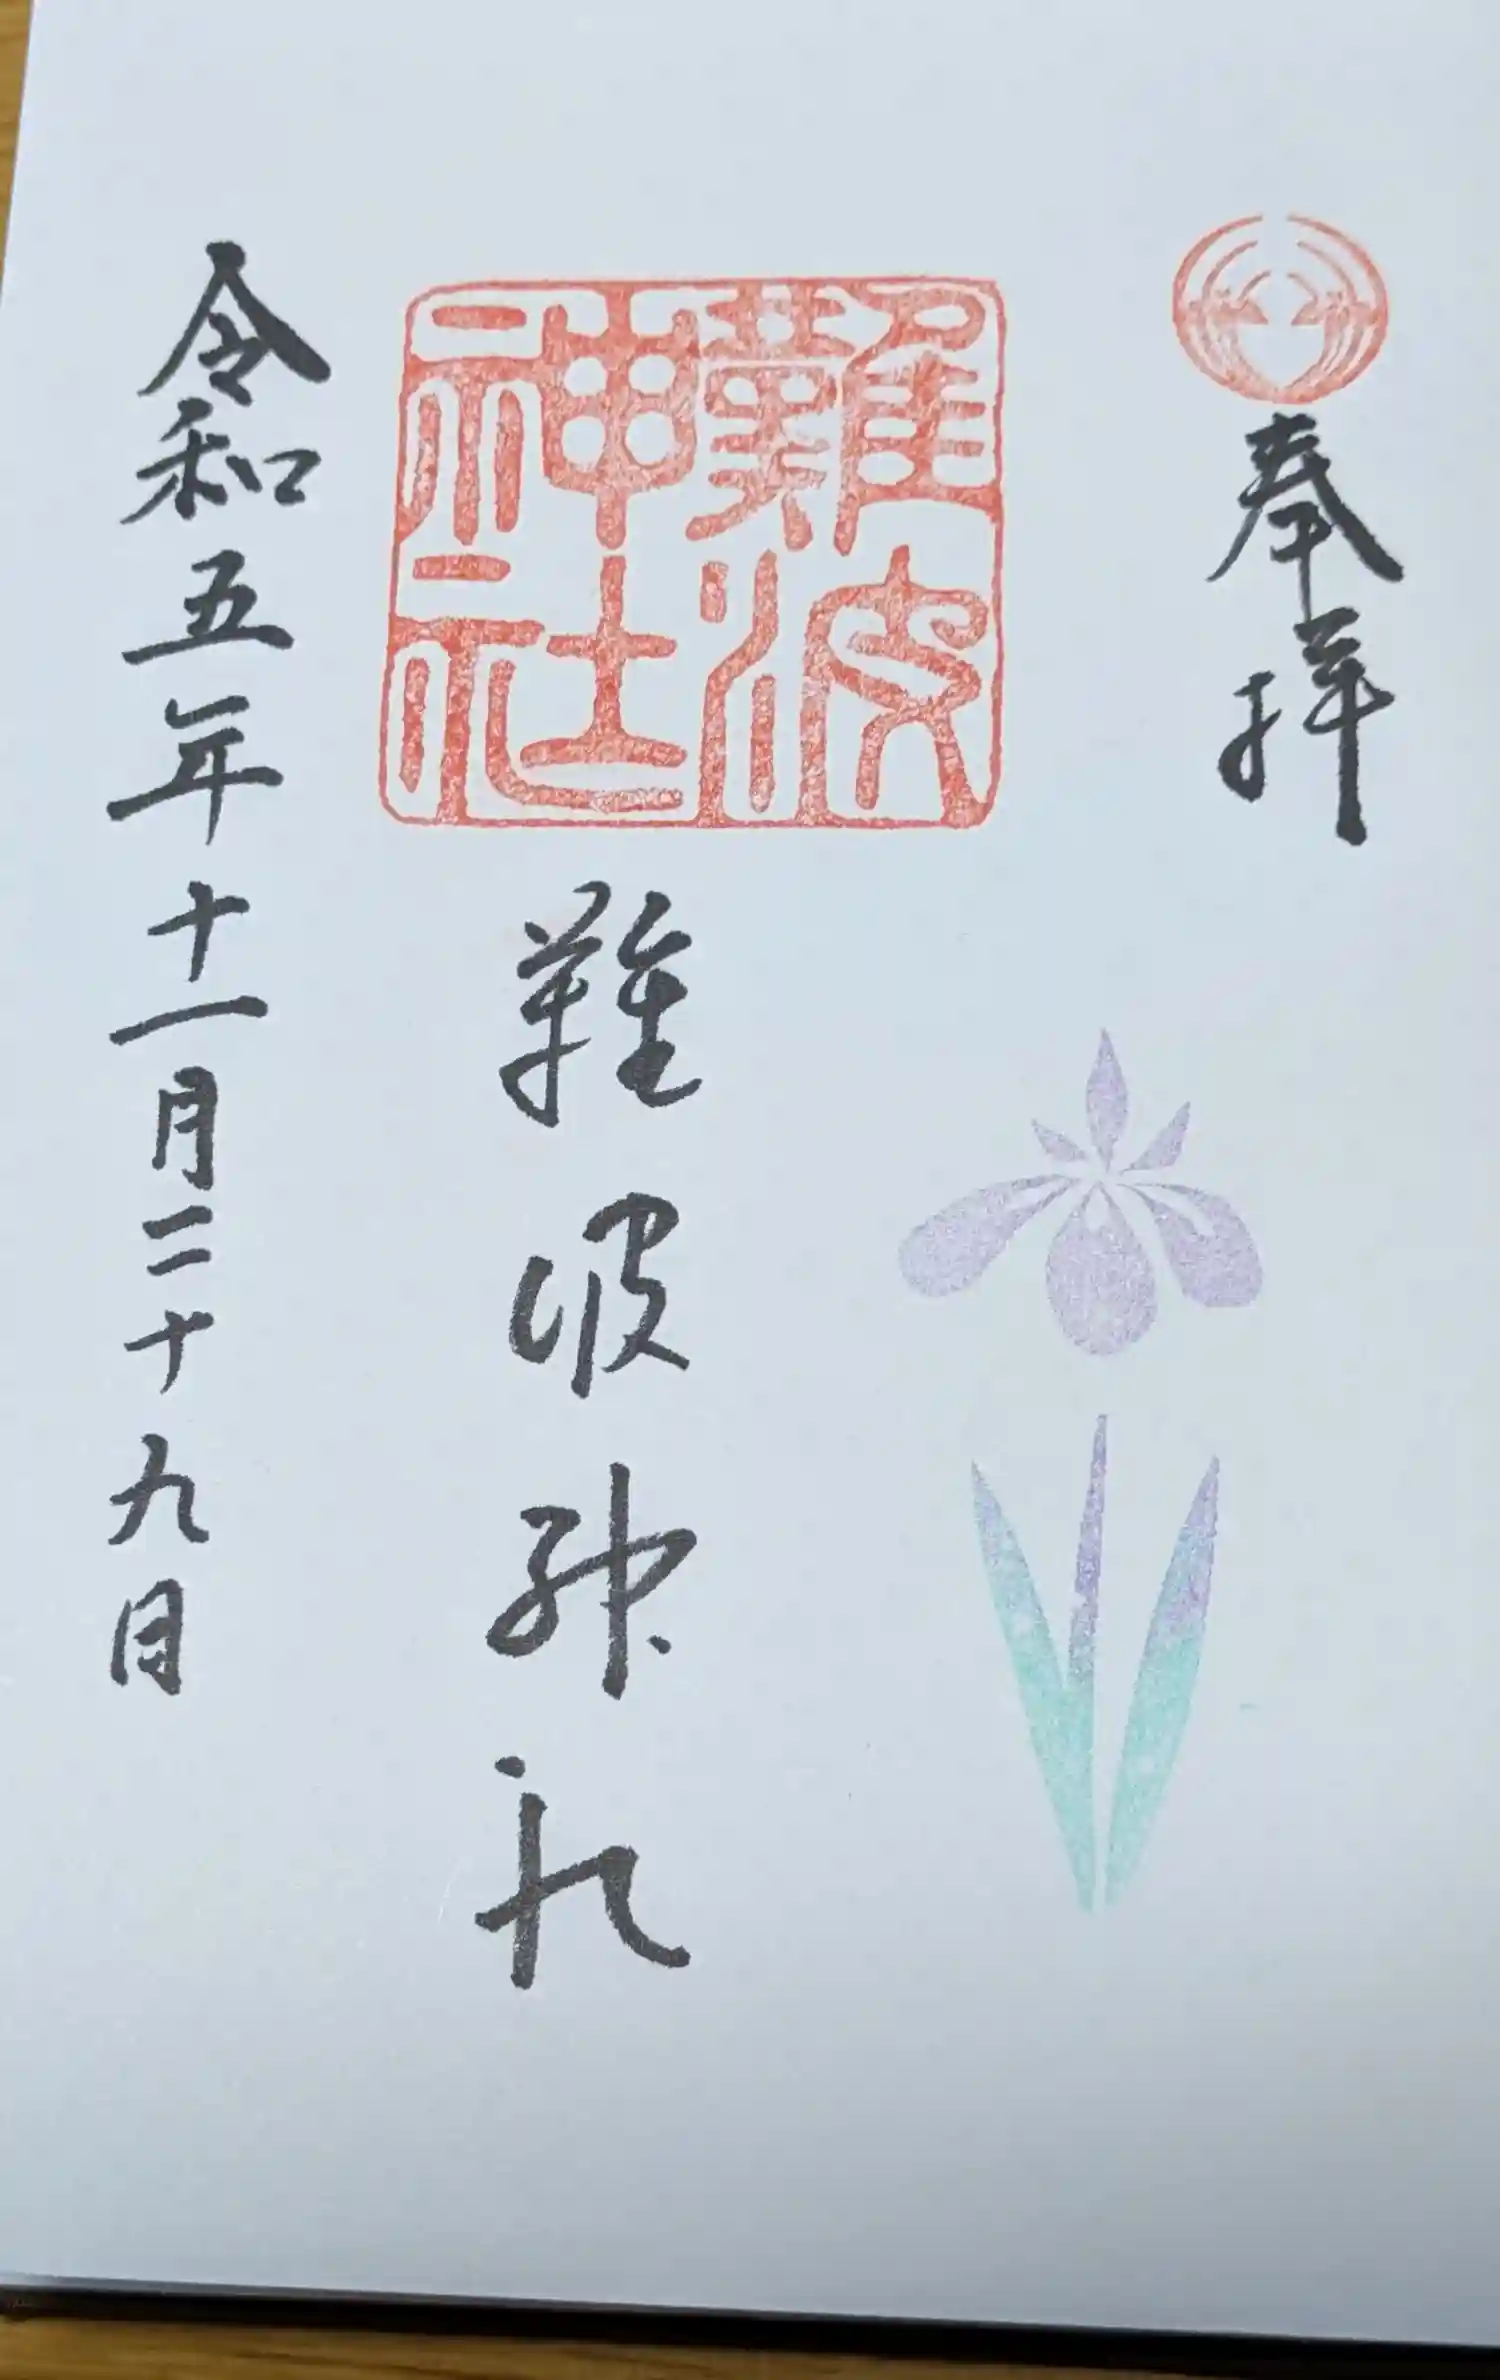 奉拝
難波神社
難波神社
令和五年十一月二十九日